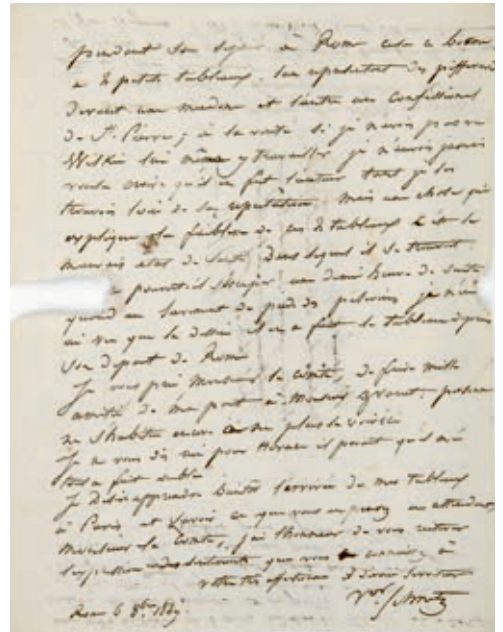 pendant son sejour à Rome cela a
a 2 petits tableaux. l'un representant des pifferari
devant une madone et l'autre un Confessional
de St. Pierre; à la verité si je n'avois pas vu
Wilkie lui même y travailler je n'aurois jamais
voulu croire qu'il en fut l'auteur tant je les
trouvois loin de la reputation mais une chose qui
explique la faiblesse de ces 2 tableaux c'est le
mauvais état de santé dans lequel il se trouvoit
pouvoit il une demi heure de suite
quand au lavement de pied des pelerins je n'en
ai vu que le dessin il en a fait le tableau depuis
son depart de Rome
Je vous prie Monsieur le comte, de faire mille
amitiés de ma part à Monsieur personne
ne s'habitue encore a ne plus le voir ici
Je ne vous dis rien pour Horace il parait qu'il m'a
tout a fait oublié
Je desire apprendre bientôt l'arrivée de mes tableaux
à Paris et savoir ce que vous en pensez en attendant
Monsieur le Comte, j'ai l'honneur de vous
l'expression des sentiments que vous connaissez à
votre tres affectionné et devoué serviteur
Vor Schnetz
Rome 6 8bre